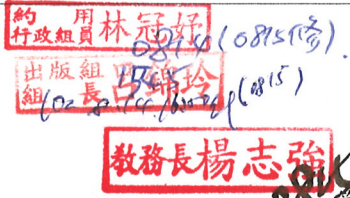 約用行政組員林冠妤
0814(0815修)
出版組組長呂錦玲
1545
(0815)
教務長楊志強